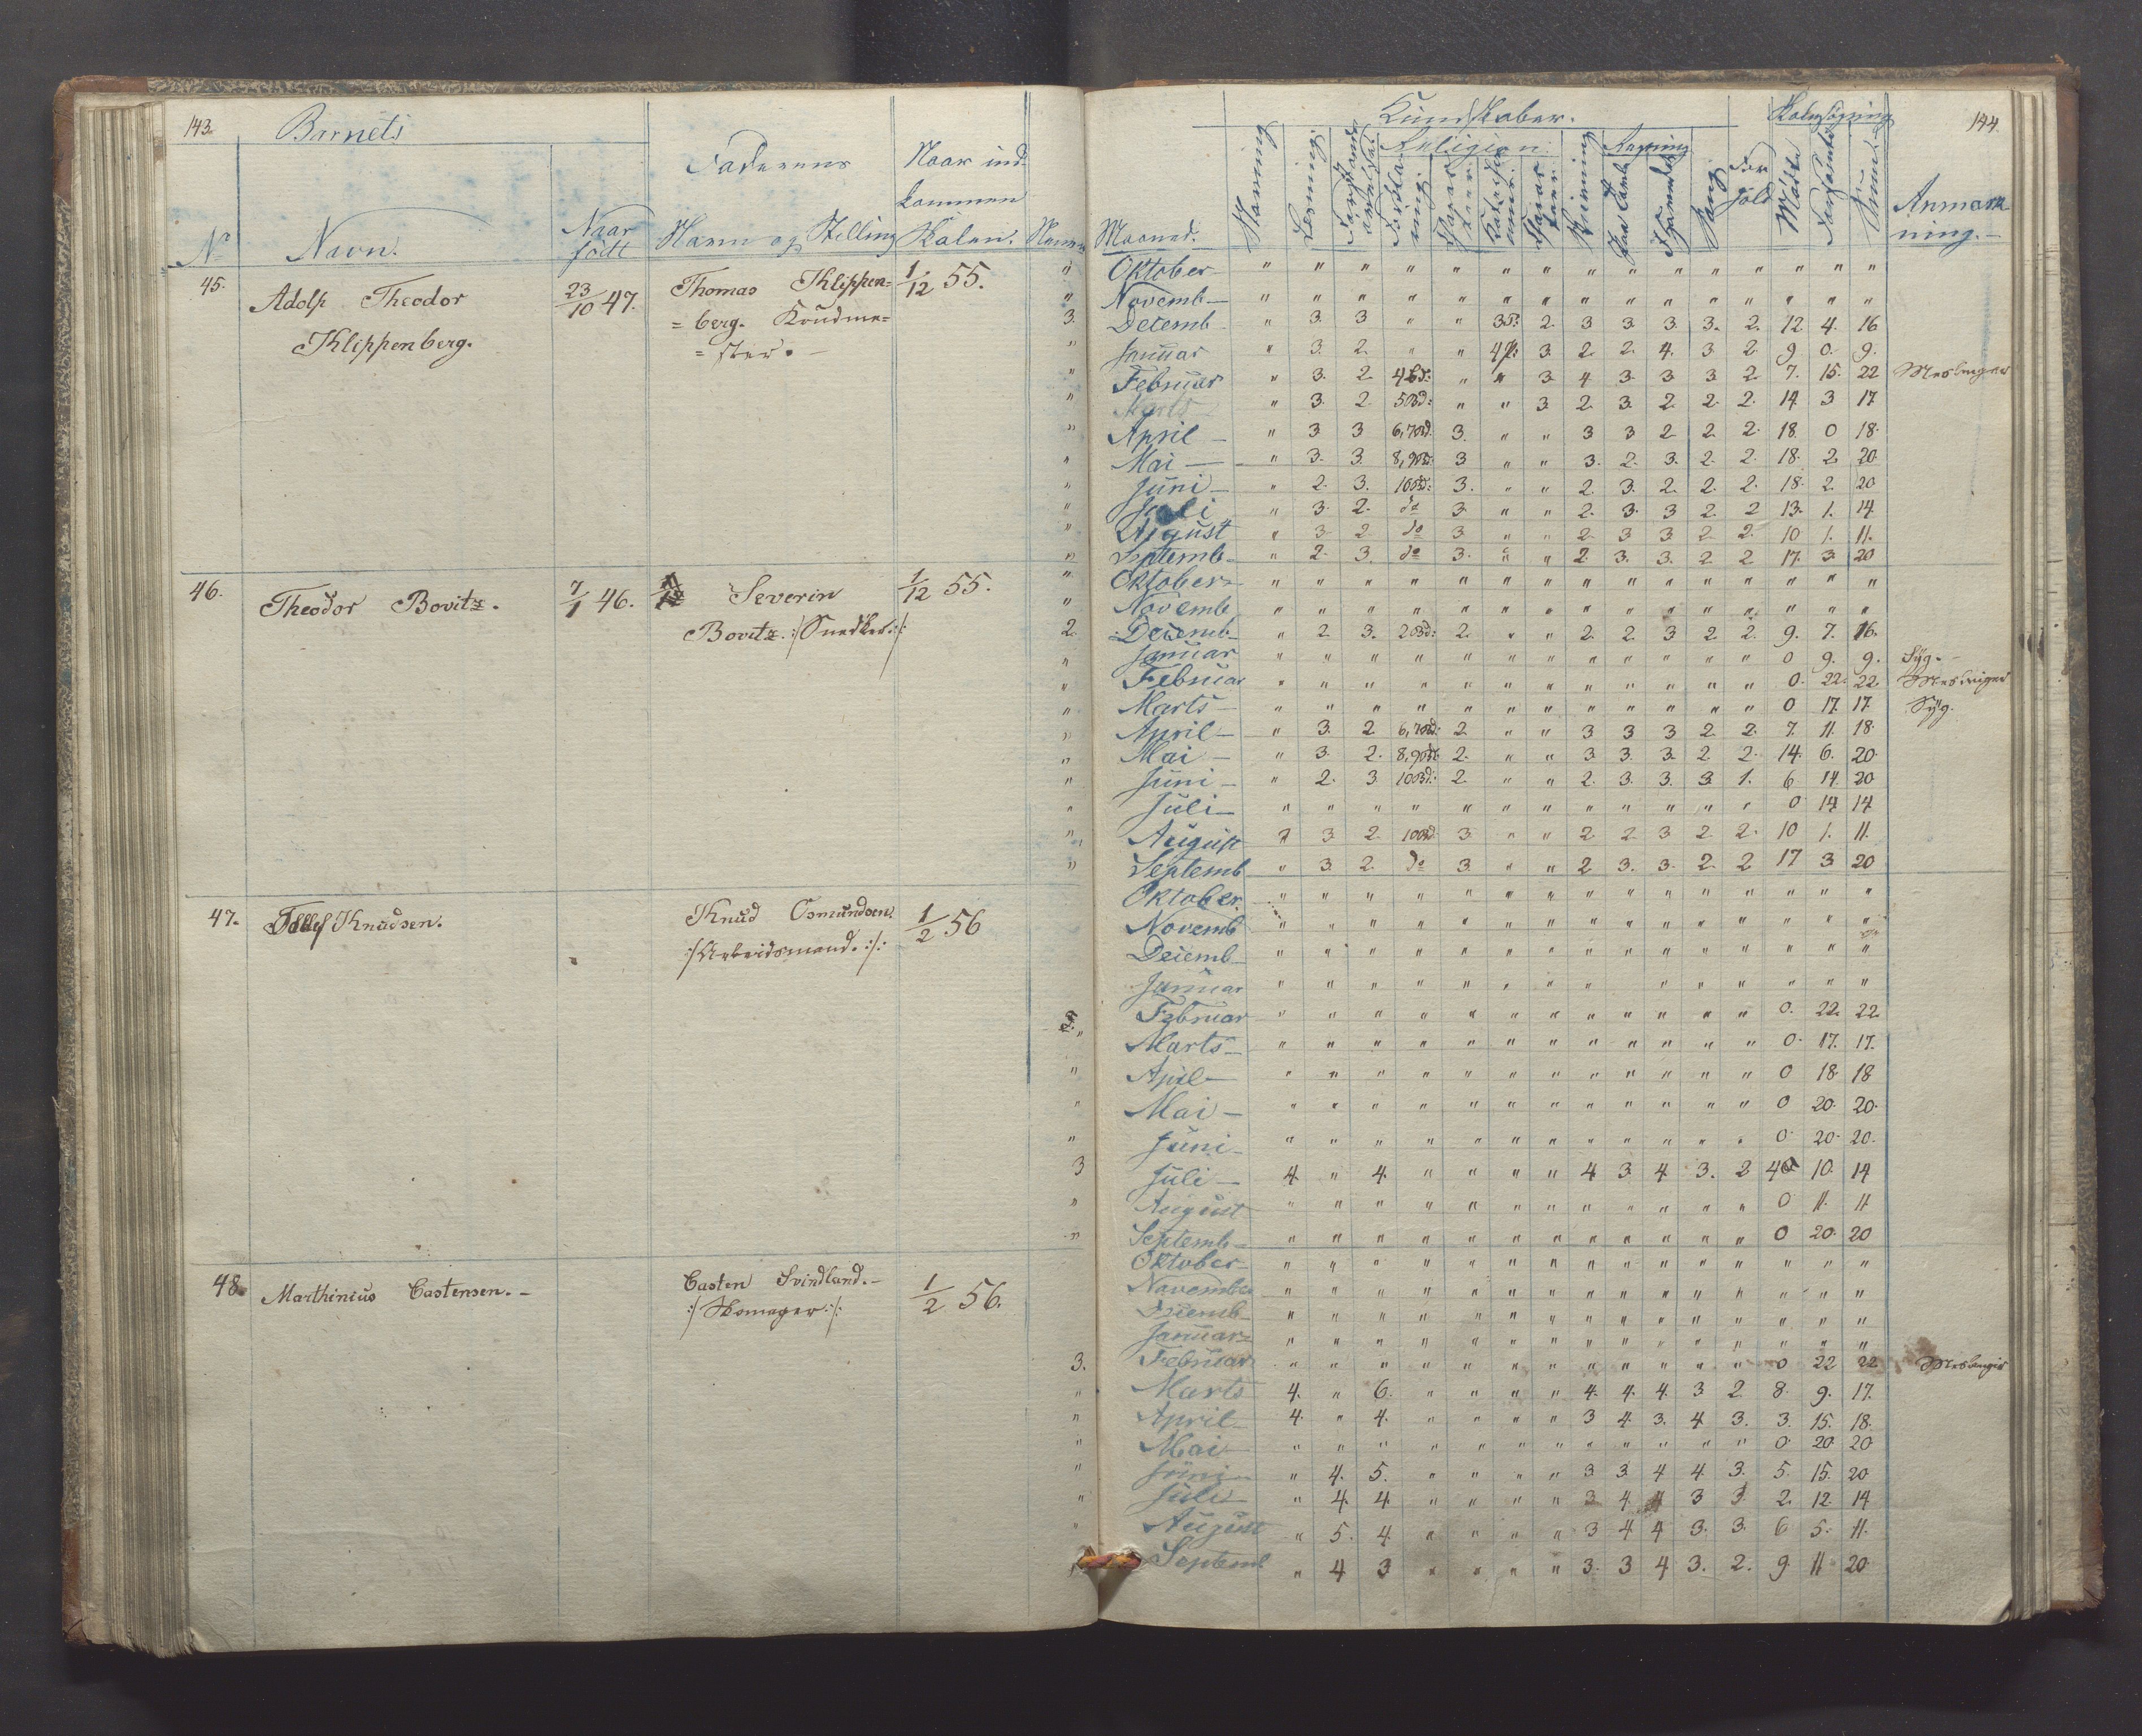 143.
Barnets
Faderens
Naar ind-
kommen
No
Navn.
Naar
födt
Navn og Stilling
Skolen.
45.
Adolf Theodor
Klippenberg.
23/10 47.
Thomas Klippen=
= berg. Kondme=
= ster. –
1/12 55.
46.
Theodor Bovitz.
7/1 46.
Severin
Bovitz. :/Snedker:/:
1/12 55.
47.
Knudsen.
Knud Osmundsen.
:/Arbeidsmand.:/:
1/2 56
48.
Marthinius Castensen. –
Casten Svindland. –
:/Skomager:/:
1/2 56.
144.
Kundskaber.
Skolesøgning
Religion.
Regning
Maaned.
Stavning
Læsning
Skrivning
Sang
For
hold
Mödte
Forsömte
Anmærk
ning. –
" Oktober " " " " " " " " " " " " " " "
" Novemb – " " " " " " " " " " " " " " "
3. Decemb " 3. 3 " " 3P: 2. 3 3. 3. 3. 2. 12. 4. 16
" Januar " 3. 2. " " 4P: 3. 2. 2. 4. 3 2. 9 0. 9.
" Februar " 3. 2. 4Bd: " " 3. 4 3. 3 3 2. 7. 15. 22
" Marts " 3. 2. 5Bd: " " 3. 2. 3. 2. 2. 2. 14 3 17
" April – " 3. 3 6,7Bd. 3. " " 3 3 2 2 2. 18. 0 18.
" Mai – " 3. 3. 8,9Bd: 3 " " 3. 2. 3. 2. 2. 18. 2. 20
" Juni – " 2. 3. 10Bd: 3. " " 2. 3. 2. 2. 2. 18. 2. 20
" Juli " 3. 2. do 3. " " 2. 3. 3 2. 2 13. 1. 14
" August " 3 2 do 3 " " 2 3 3 2 2. 10 1. 11.
" Septemb – " 2. 3. do 3. " " 2. 3. 3. 2 2 17. 3. 20
" Oktober " " " " " " " " " " " " " " "
" Novemb " " " " " " " " " " " " " " "
2. Decemb – " 2. 3. 2Bd: 2. " " 2. 2. 3 2 2. 9. 7. 16.
" Januar " " " " " " " " " " " " 0 9. 9. Syg. –
" Februar " " " " " " " " " " " " 0. 22. 22
" Marts – " " " " " " " " " " " " 0 17. 17. Syg.
" April – " 3. 2 6,7Bd: 2 " " 3 3 3 2 2. 7. 11. 18.
" Mai – " 3. 2. 8,9Bd: 2. " " 3 3. 3. 2 2. 14. 6. 20.
" Juni – " 2. 3 10Bd: 2. " " 2. 3. 3. 3 1. 6 14. 20
" Juli – " " " " " " " " " " " " 0 14 14
" August 3 2. 10Bd 3. " " 2. 2. 3 2. 2. 10 1. 11.
" Septemb " 3. 2. do 3. " " 2 3. 3. 2. 2 17 3 20
Oktober. " " " " " " " " " " " " " " "
Novemb " " " " " " " " " " " " " " "
Decemb – " " " " " " " " " " " " " " "
Januar " " " " " " " " " " " " " "
Februar " " " " " " " " " " " " 0. 22. 22
" Marts – " " " " " " " " " " " " 0. 17. 17.
" April – " " " " " " " " " " " " 0 18. 18
" Mai – " " " " " " " " " " " " 0 20. 20.
" Juni – " " " " " " " " " " " " 0. 20. 20.
3 Juli – 4. " 4. " " " " 4 3. 4 3. 2 4 10. 14
" August " " " " " " " " " " " " 0 11. 11
" Septemb – " " " " " " " " " " " " 0 20. 20
Oktober – " " " " " " " " " " " " " " "
November " " " " " " " " " " " " " " "
Decemb – " " " " " " " " " " " " " " "
Januar – " " " " " " " " " " " " " " "
3. Februar " " " " " " " " " " " " 0 22 22
" Marts 4. " 6. " " " " 4. 4. 4. 3 2. 8. 9. 17.
" April – 4. " 4. " " " " 3 4 3. 4 3. 3. 15. 18.
" Mai – " " " " " " " " " " " " 0. 20. 20
" Juni – " 4. 5. " " " " 3. 3 4 4 3. 5. 15. 20
" Juli – " 4. 4. " " " " 3 4 4 3 3 2. 12. 14
" August " 5. 4. " " " " 3 4 4 3. 3. 6 5. 11.
Septemb " 4 3 " " " " 3. 3 4 3. 2. 9. 11 20